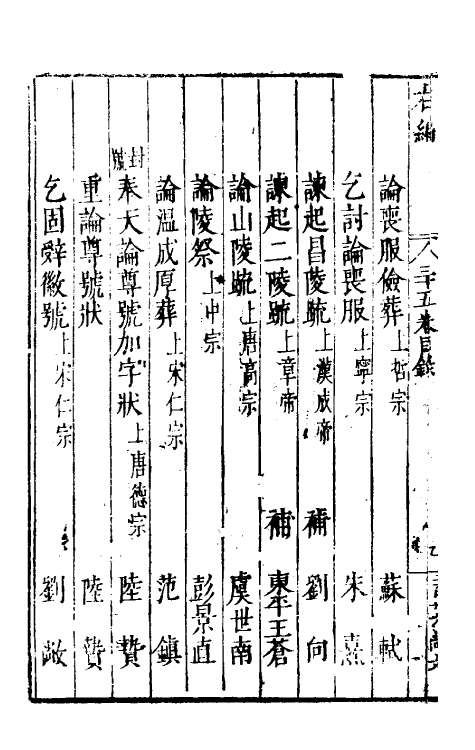 右編
三十五卷目錄
論喪服儉葬上哲宗 蘇軾
乞討論喪服上寧宗 朱熹
諫起昌陵疏上漢成帝 補 劉向
諫起二陵疏上章帝 補 東平王蒼
論山陵疏上唐高宗 虞世南
論陵祭上中宗 彭景直
論溫成厚葬上宋仁宗 范鎮
封號
奉天論尊號加字狀上唐德宗 陸贄
重論尊號狀 陸贄
乞固辭徽號上宋仁宗 劉敞